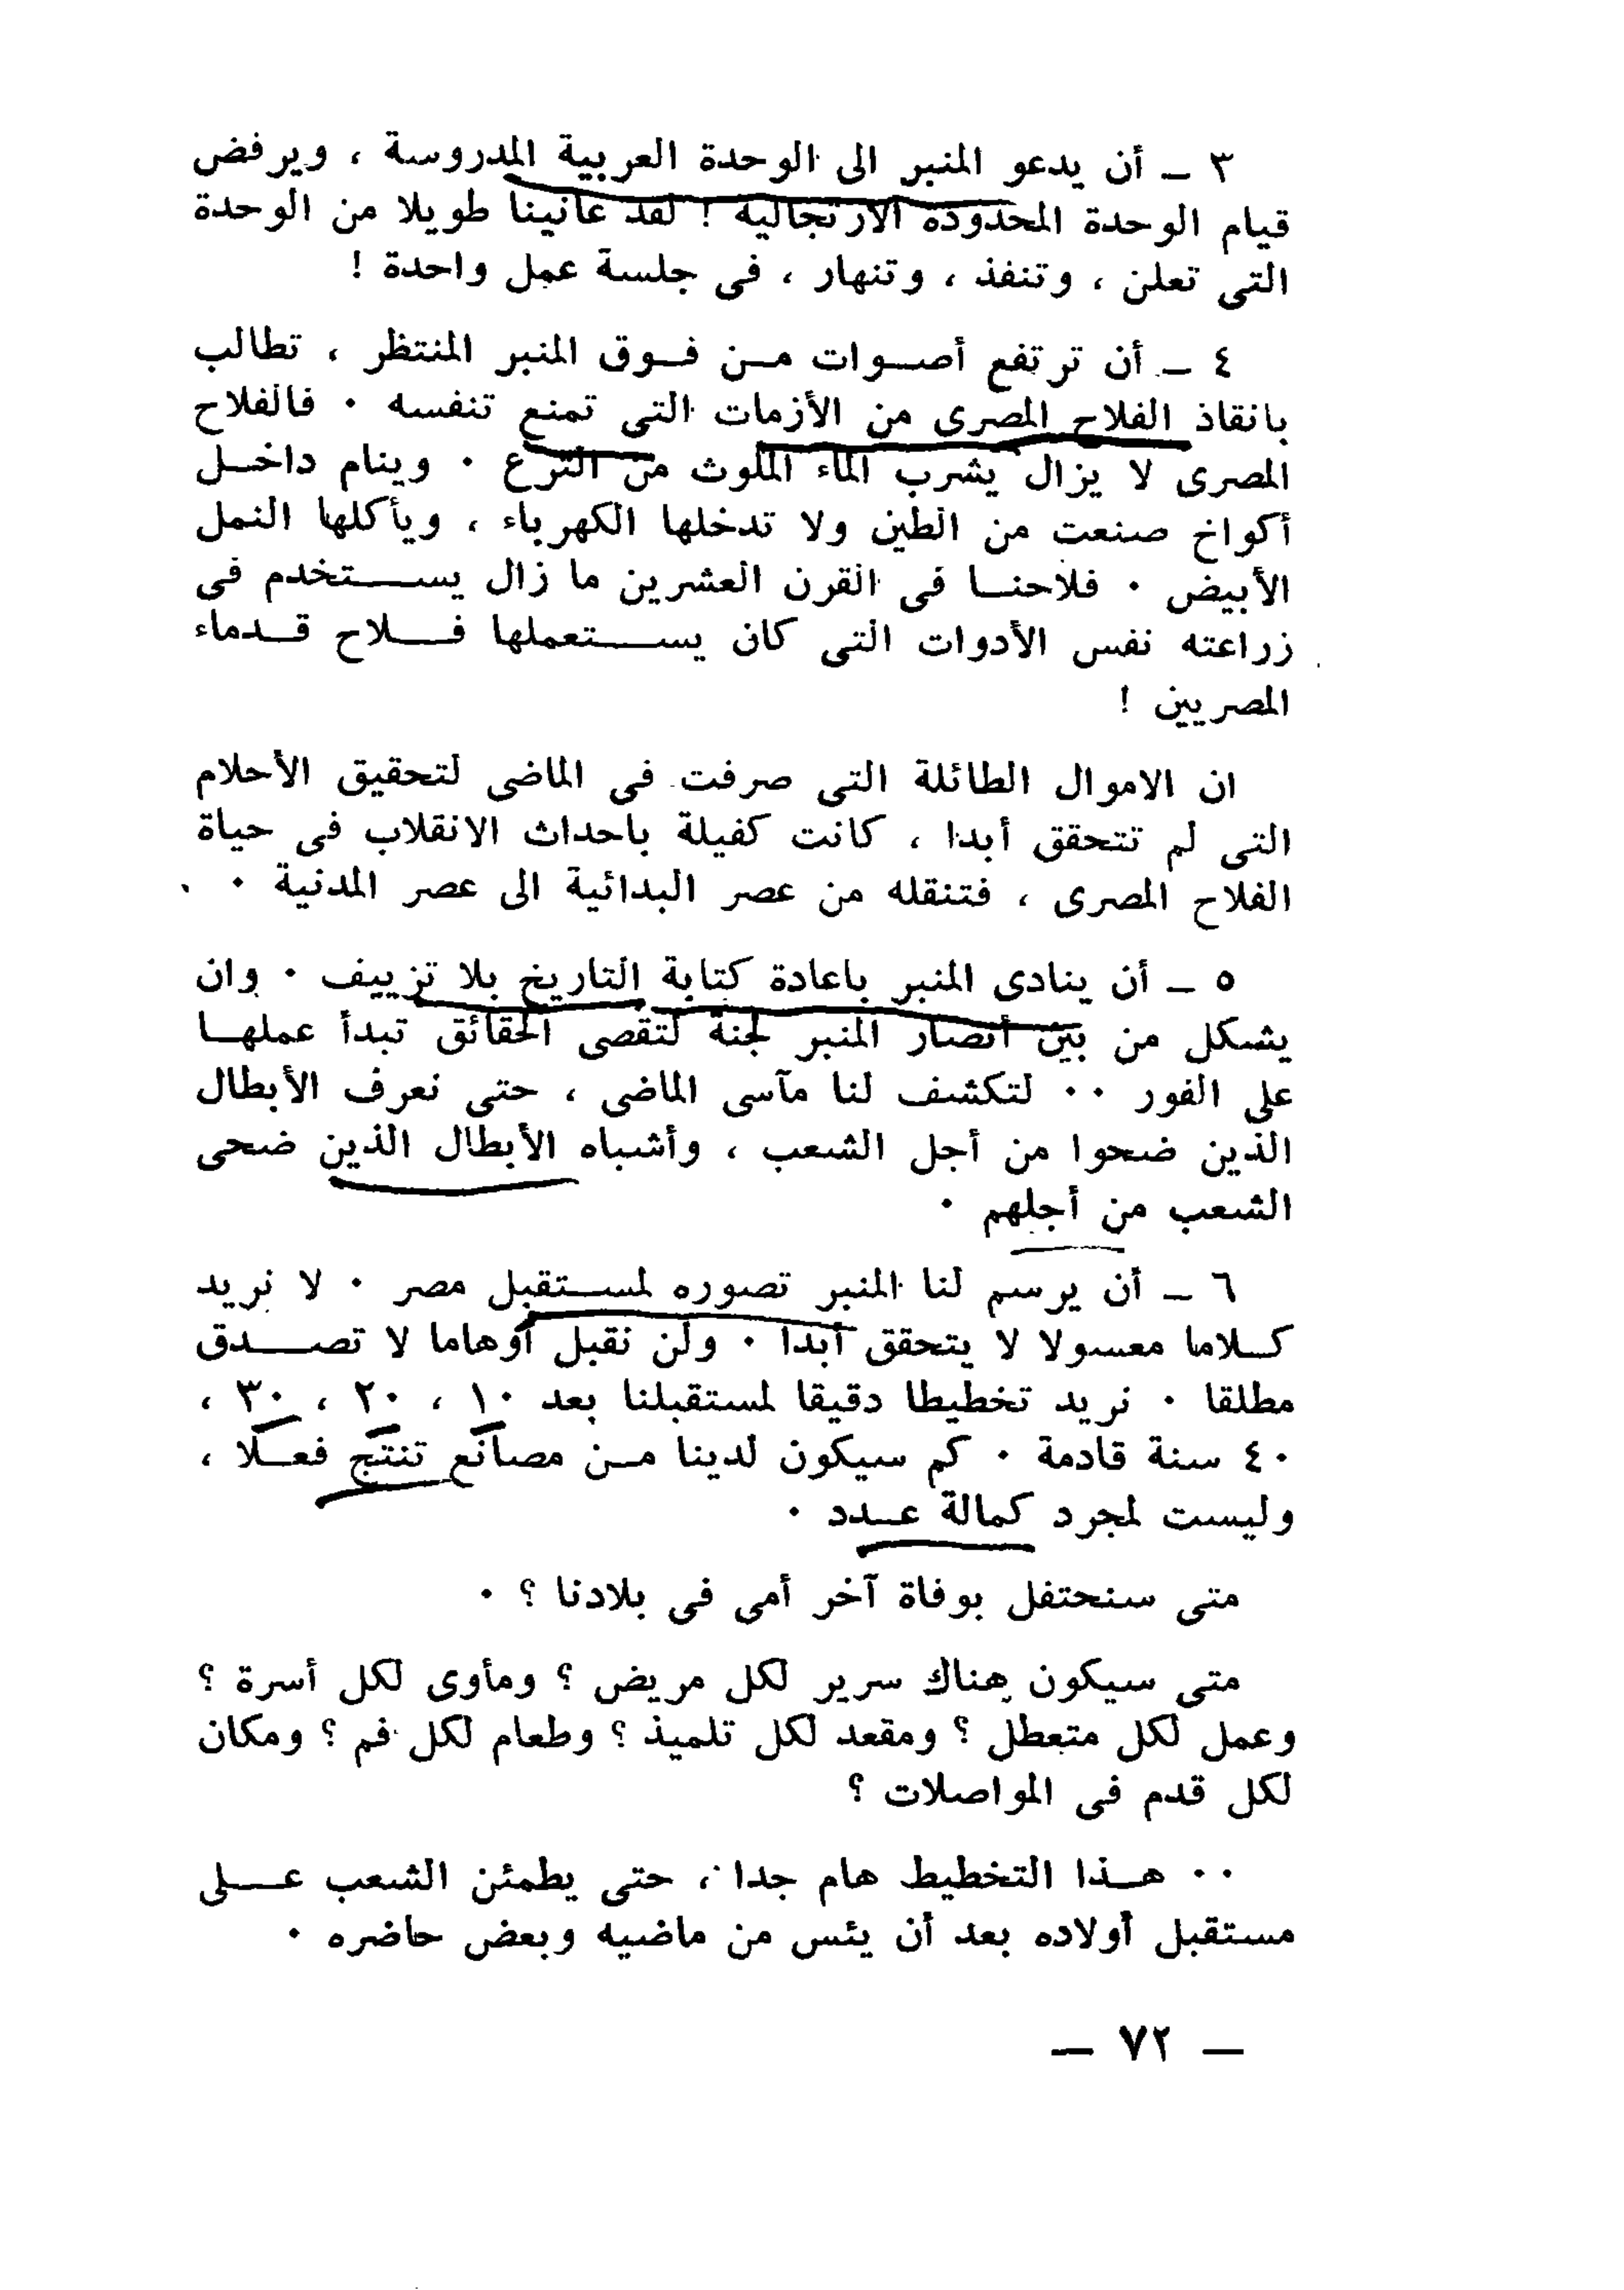 ٣ ــ أن يدعو المنبر الى الوحدة العربية المدروسة ، ويرفض
قيام الوحدة المحدودة الارتجالية ! لقد عانينا طويلا من الوحدة
التى تعلن ، وتنفذ ، وتنهار ، فى جلسة عمل واحدة !
٤ ــ أن ترتفع أصوات من فوق المنبر المنتظر ، تطالب
بانقاذ الفلاح المصرى من الأزمات التى تمنع تنفسه ٠ فالفلاح
المصرى لا يزال يشرب الماء الملوث من الترع ٠ وينام داخل
أكواخ صنعت من الطين ولا تدخلها الكهرباء ، ويأكلها النمل
الأبيض ٠ فلاحنا فى القرن العشرين ما زال يستخدم فى
زراعته نفس الأدوات التى كان يستعملها فلاح قدماء
المصريين !
ان الاموال الطائلة التى صرفت فى الماضى لتحقيق الأحلام
التى لم تتحقق أبدا ، كانت كفيلة باحداث الانقلاب فى حياة
الفلاح المصرى ، فتنقله من عصر البدائية الى عصر المدنية ٠
٥ ــ أن ينادى المنبر باعادة كتابة التاريخ بلا تزييف ٠ وان
يشكل من بين أنصار المنبر لجنة لتقصى الحقائق تبدأ عملها
على الفور ٠٠ لتكشف لنا مآسى الماضى ، حتى نعرف الأبطال
الذين ضحوا من أجل الشعب ، وأشباه الأبطال الذين ضحى
الشعب من أجلهم ٠
٦ ــ أن يرسم لنا المنبر تصوره لمستقبل مصر ٠ لا نريد
كلاما معسولا لا يتحقق أبدا ٠ ولن نقبل أوهاما لا تصدق
مطلقا ٠ نريد تخطيطا دقيقا لمستقبلنا بعد ١٠ ، ٢٠ ، ٣٠ ،
٤٠ سنة قادمة ٠ كم سيكون لدينا من مصانع تنتج فعلا ،
وليست لمجرد كمالة عدد ٠
متى سنحتفل بوفاة آخر أمى فى بلادنا ؟ ٠
متى سيكون هناك سرير لكل مريض ؟ ومأوى لكل أسرة ؟
وعمل لكل متعطل ؟ ومقعد لكل تلميذ ؟ وطعام لكل فم ؟ ومكان
لكل قدم فى المواصلات ؟
٠٠ هذا التخطيط هام جدا ، حتى يطمئن الشعب على
مستقبل أولاده بعد أن يئس من ماضيه وبعض حاضره ٠
ــ ٧٢ ــ